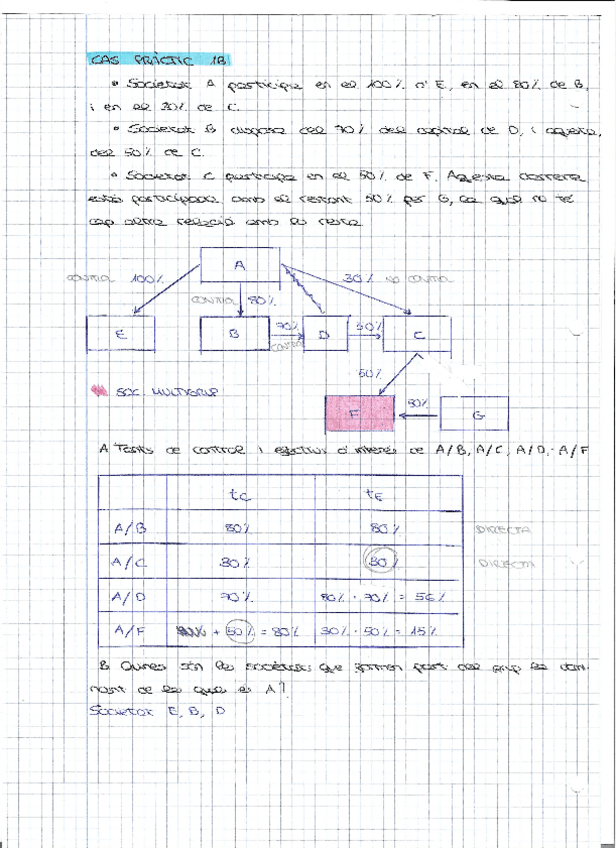 CAS PRÀCTIC 1B
• Societat A participa en el 100% d'E, en el 80% de B,
i en el 30% de C.
• Societat B disposa del 70% del capital de D, i aquesta,
del 50% de C.
• Societat C participa en el 50% de F. Aquesta darrera
està participada amb el restant 50% per G, la qual no té
cap altra relació amb la resta
A
CONTROL 100%
30% NO CONTROL
CONTROL 80%
E
B
70%
CONTROL
D
50%
C
50%
SOC. MULTIGRUP
F
50%
G
A Tants de control i efectiu d'interès de A/B, A/C, A/D, A/F
tC tE
A/B 80% 80% DIRECTA
A/C 30% 30% DIRECTA
A/D 70% 80% · 70% = 56%
A/F + 50% = 80% 30% · 50% = 15%
B Quines són les societats que formen part del grup la domi-
nant de les quals és A?
Societat E, B, D